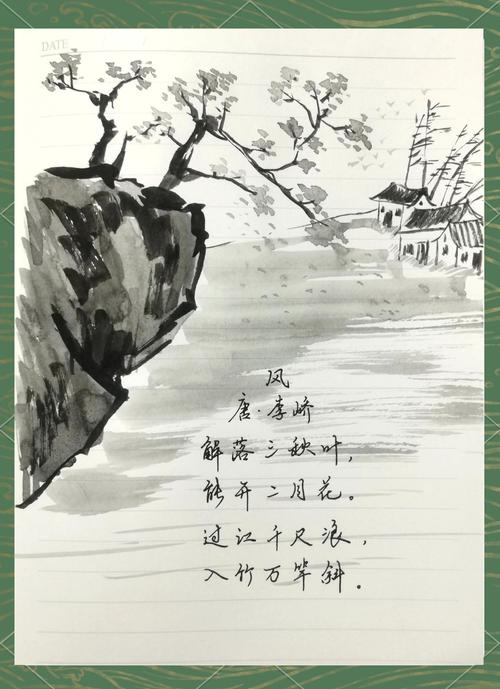 DATE
风
唐·李峤
解落三秋叶，
能开二月花。
过江千尺浪，
入竹万竿斜。